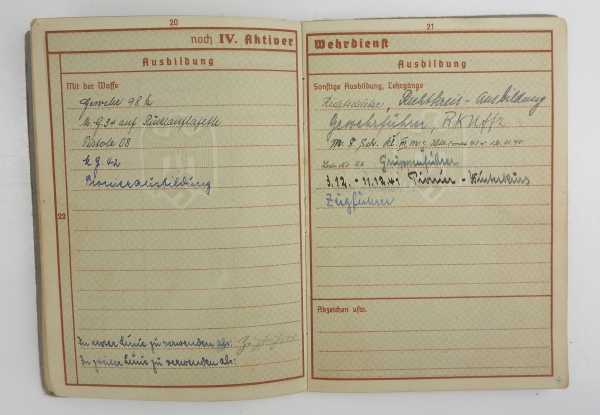 20
noch IV. Aktiver
Ausbildung
Mit der Waffe
Gewehr 98 k
M.G. 34 auf Rücklauflafette
Pistole 08
M.G. 42
Pionierausbildung
23
In erster Linie zu verwenden als:
In zweiter Linie zu verwenden als:
21
Wehrdienst
Ausbildung
Sonstige Ausbildung, Lehrgänge
Richtkreis-Ausbildung
Gewehrführer, R.K. Uffz
Gruppenführer
3.12. - 11.12.41 Pionier-Winterkurs
Zugführer
Abzeichen usw.